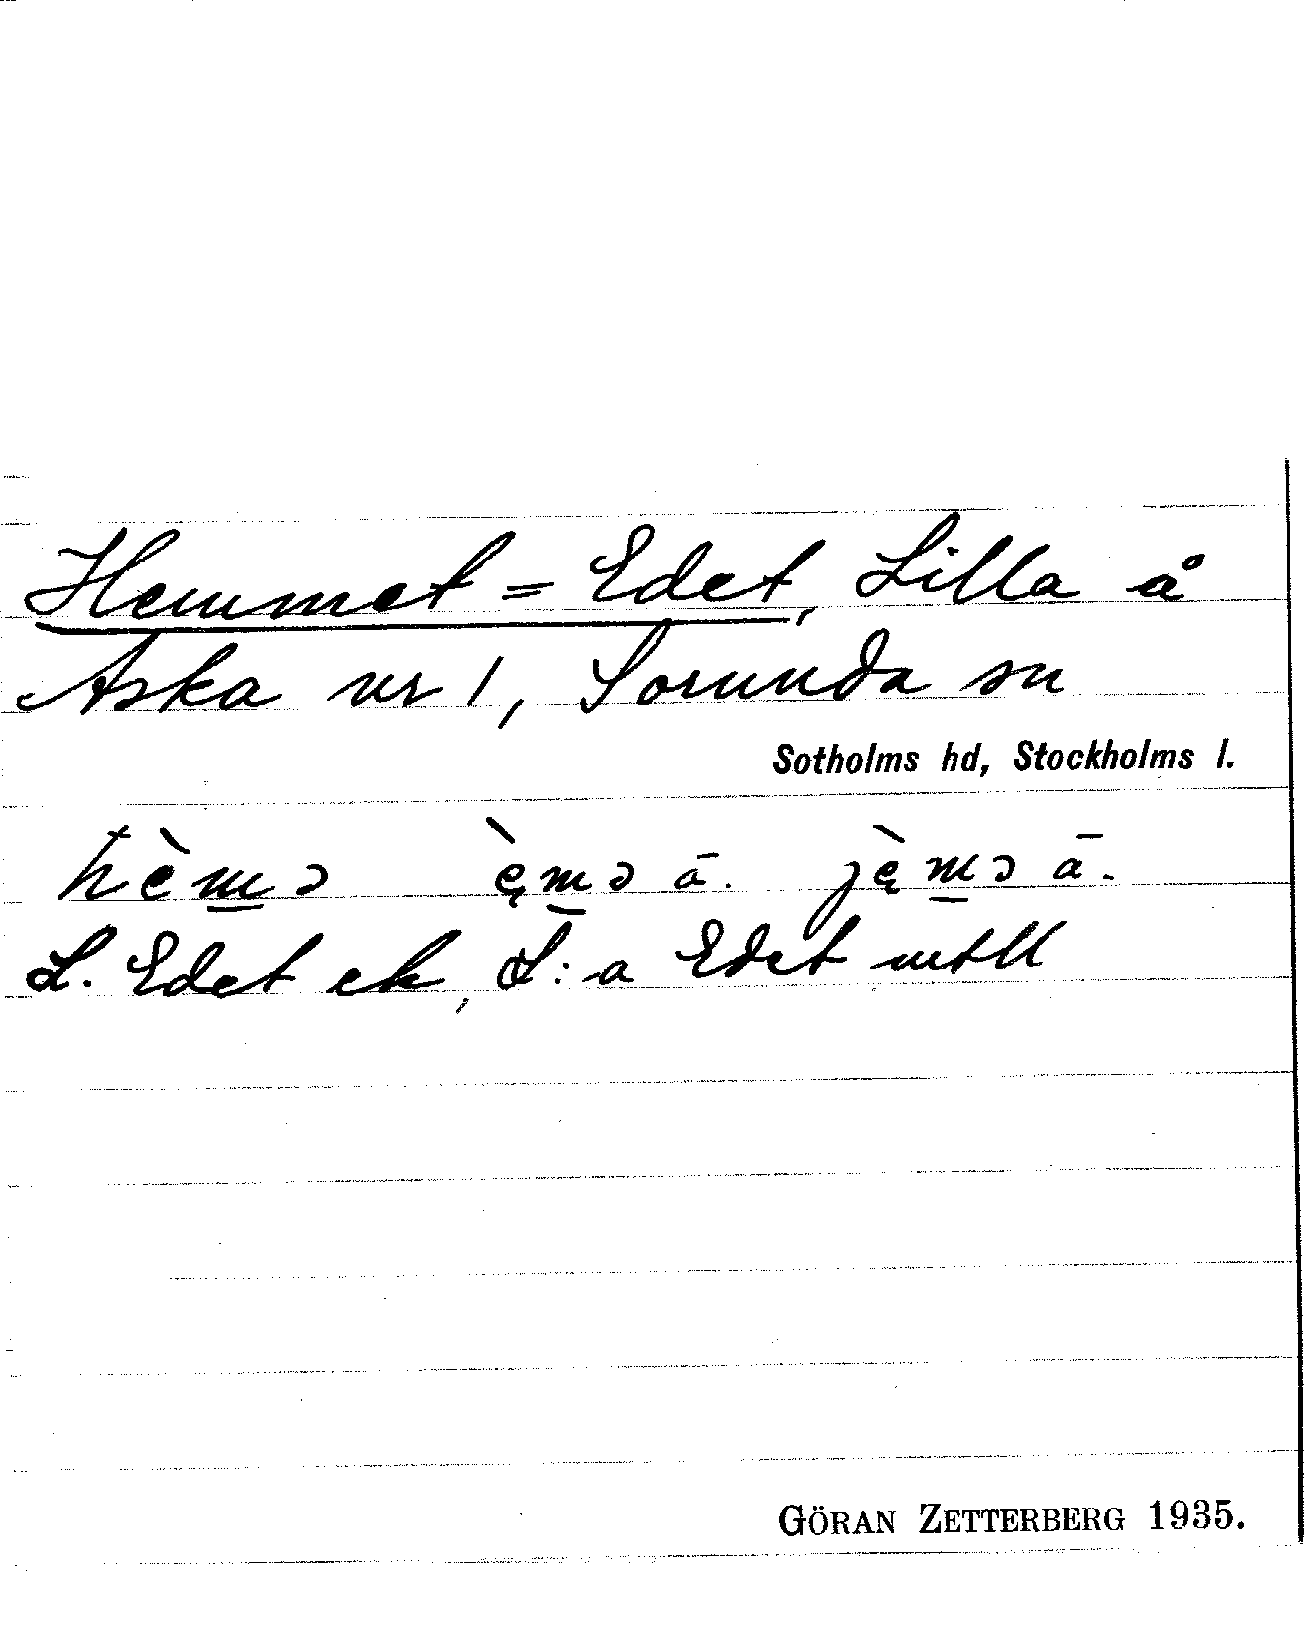 Hemmet = Edet, Lilla å
Aska nr 1, Sorunda sn
Sotholms hd, Stockholms l.
hèm̲ə ę̀m̲ə ā. ję̀m̲ə ā.
L. Edet ek, L:a Edet mtll
GÖRAN ZETTERBERG 1935.